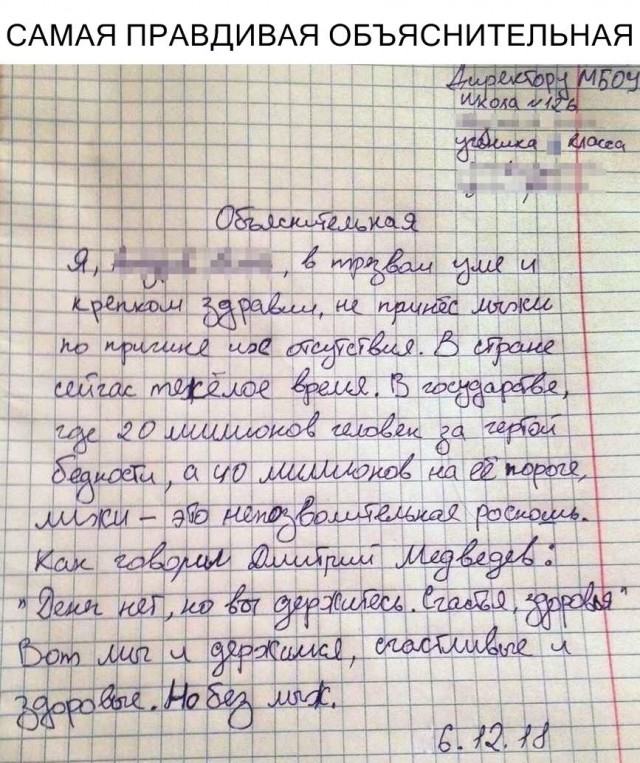 САМАЯ ПРАВДИВАЯ ОБЪЯСНИТЕЛЬНАЯ
Директору МБОУ
школа №126
ученика класса
Объяснительная
Я, , в трезвом уме и
крепком здравии, не принёс лыжи
по причине их отсутствия. В стране
сейчас тежёлое время. В государстве,
где 20 миллионов человек за чертой
бедности, а 40 миллионов на её пороге,
лыжи – это непозволительная роскошь.
Как говорил Дмитрий Медведев:
"Денег нет, но вы держитесь. Счастья, здоровья"
Вот мы и держимся, счастливые и
здоровые. Но без лыж.
6.12.18